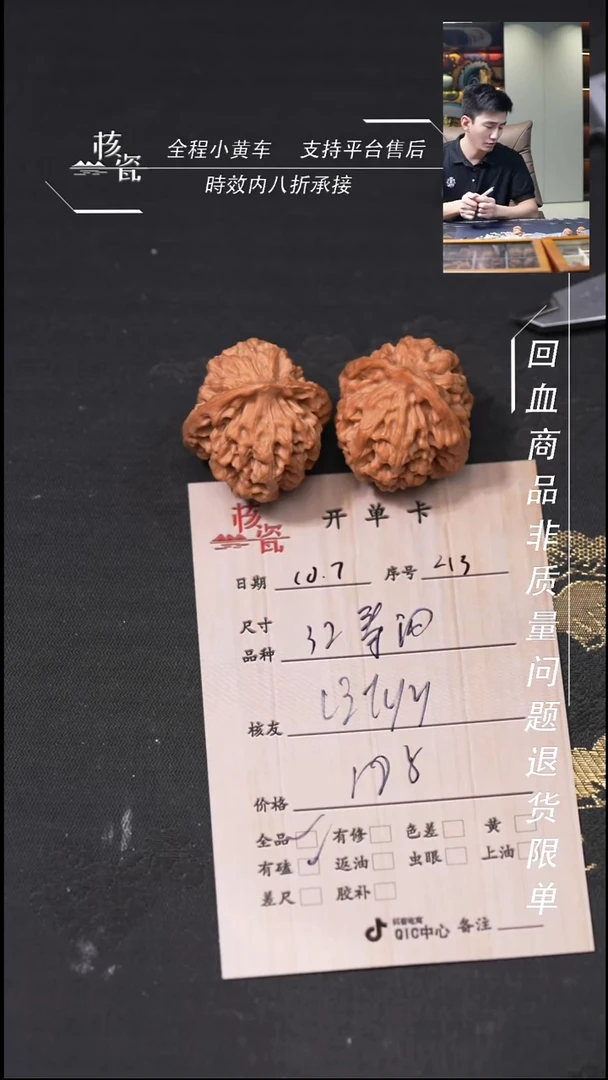 核瓷
全程小黄车 支持平台售后
時效内八折承接
回血商品非质量问题退货限单
核瓷 开单卡
日期 10.7 序号 213
尺寸 32
品种
核友
价格
全品 有修 色差 黄
有磕 返油 虫眼 上油
差尺 胶补
抖音电商
QIC中心 备注